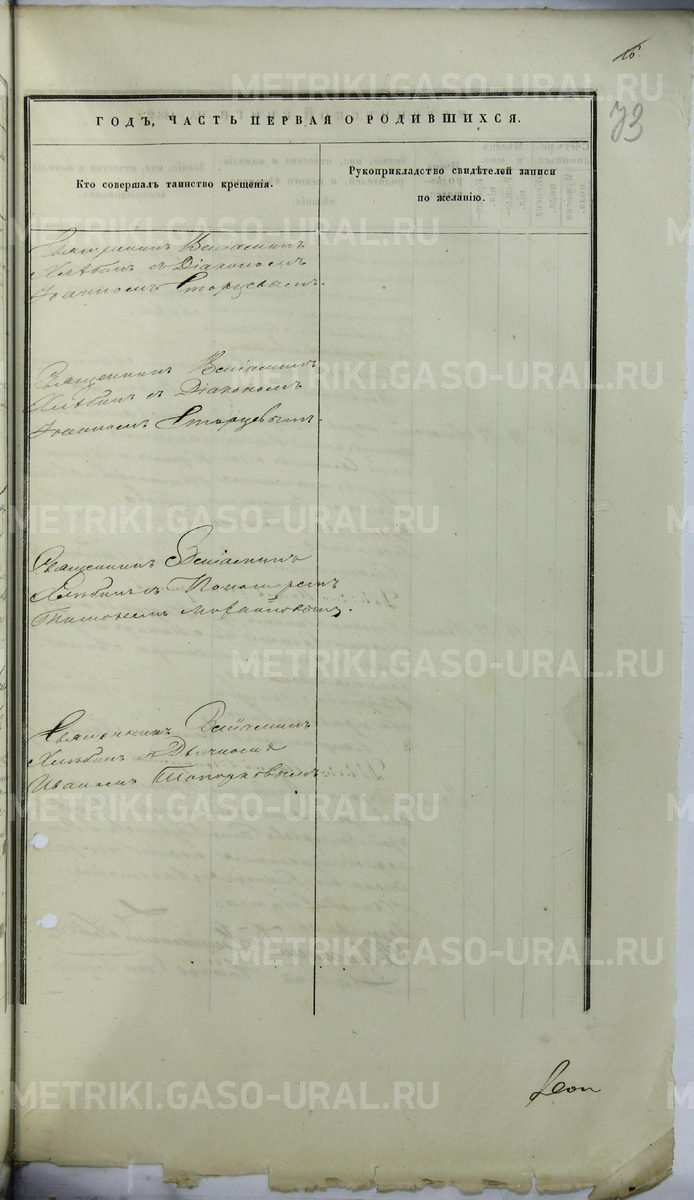 16.
73
ГОДЪ, ЧАСТЬ ПЕРВАЯ О РОДИВШИХСЯ.
Кто совершалъ таинство крещенія.
Рукоприкладство свидѣтелей записи
по желанію.
Священникъ Веніаминъ
Хлѣбинъ съ Діакономъ
Іоанномъ Старцевымъ.
Священникъ Веніаминъ
Хлѣбинъ съ Діакономъ
Іоанномъ Старцевымъ.
Священникъ Веніаминъ
Хлѣбинъ съ Пономаремъ
Священникъ Веніаминъ
Хлѣбинъ
Иваномъ Топорковымъ
METRIKI.GASO-URAL.RU
METRIKI.GASO-URAL.RU
METRIKI.GASO-URAL.RU
METRIKI.GASO-URAL.RU
METRIKI.GASO-URAL.RU
METRIKI.GASO-URAL.RU
METRIKI.GASO-URAL.RU
METRIKI.GASO-URAL.RU